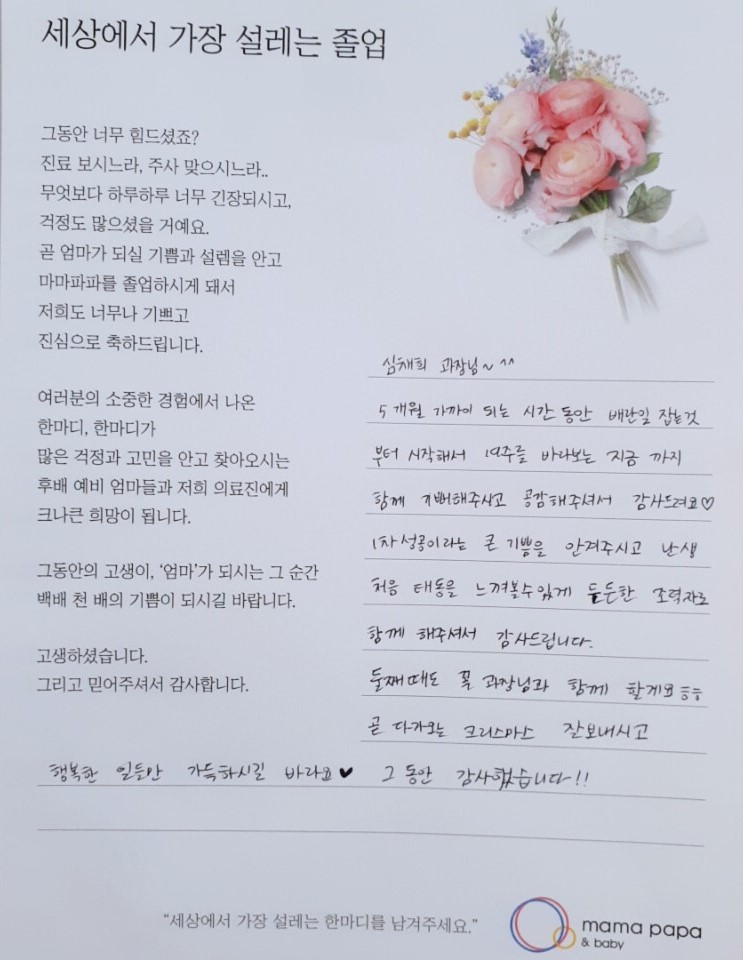 세상에서 가장 설레는 졸업
그동안 너무 힘드셨죠?
진료 보시느라, 주사 맞으시느라..
무엇보다 하루하루 너무 긴장되시고,
걱정도 많으셨을 거예요.
곧 엄마가 되실 기쁨과 설렘을 안고
마마파파를 졸업하시게 돼서
저희도 너무나 기쁘고
진심으로 축하드립니다.
여러분의 소중한 경험에서 나온
한마디, 한마디가
많은 걱정과 고민을 안고 찾아오시는
후배 예비 엄마들과 저희 의료진에게
크나큰 희망이 됩니다.
그동안의 고생이, '엄마'가 되시는 그 순간
백배 천 배의 기쁨이 되시길 바랍니다.
고생하셨습니다.
그리고 믿어주셔서 감사합니다.
심재희 과장님~ ^^
5개월 가까이 되는 시간 동안 배란일 잡는것
부터 시작해서 19주를 바라보는 지금 까지
함께 기뻐해주시고 공감해주셔서 감사드려요♡
1차성공이라는 큰 기쁨을 안겨주시고 난생
처음 태동을 느껴볼수있게 든든한 조력자로
함께 해주셔서 감사드립니다.
둘째때도 꼭 과장님과 함께 할게요 ㅎㅎ
곧 다가오는 크리스마스 잘보내시고
행복한 일들만 가득하시길 바라요♥ 그동안 감사했습니다!!
"세상에서 가장 설레는 한마디를 남겨주세요."
mama papa
& baby